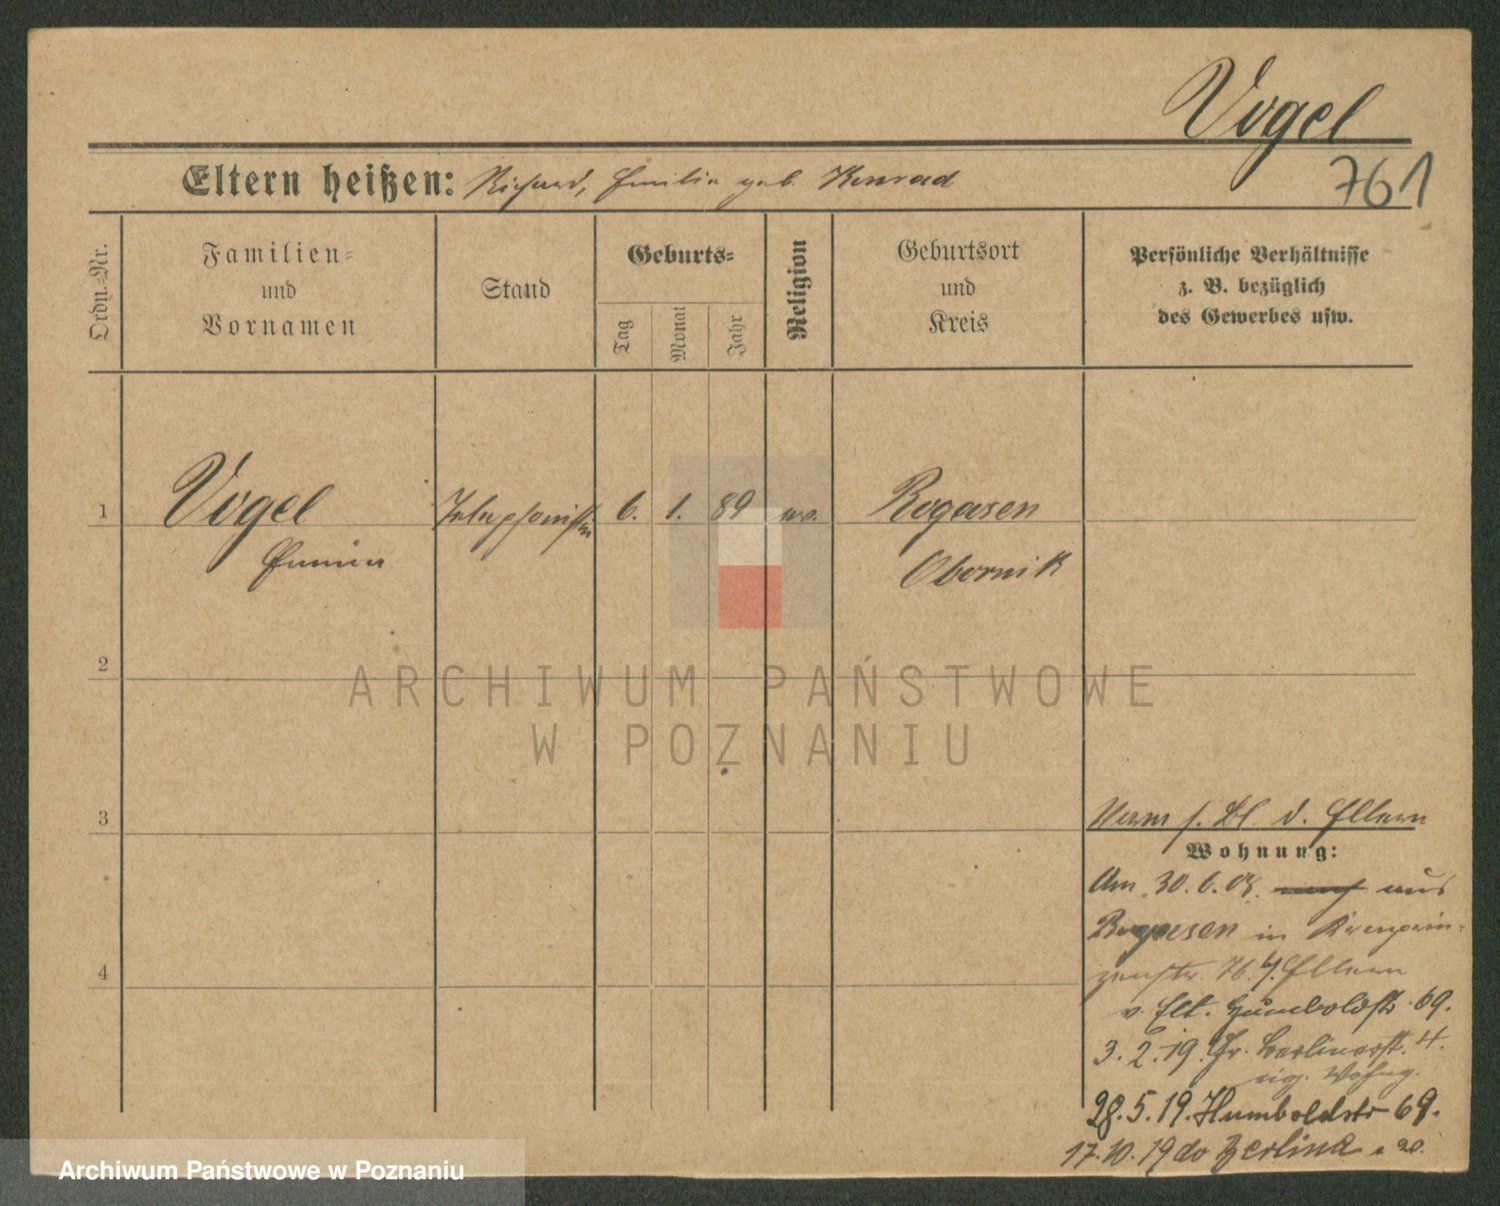 Vogel
761
Eltern heißen: Richard, Emilie geb. Konrad
Ordn.-Nr.
Familien-
und
Vornamen
Stand
Geburts-
Tag
Monat
Jahr
Religion
Geburtsort
und
Kreis
Persönliche Verhältnisse
z. B. bezüglich
des Gewerbes usw.
1
Vogel
Telephonistin
6. 1. 89
ev.
Rogasen
Obornik
2
ARCHIWUM PAŃSTWOWE
W POZNANIU
3
s. Bl. d. Eltern
Wohnung:
Am 30.6.08. aus
Rogasen in Kronprin-
zenstr. 76. Eltern
v. Elt. Humboldstr. 69.
4
3.2.19. Gr. Berlinerstr. 4.
eig. Wohng.
28.5.19. Humboldstr 69.
17.10.19 do Berlina
Archiwum Państwowe w Poznaniu